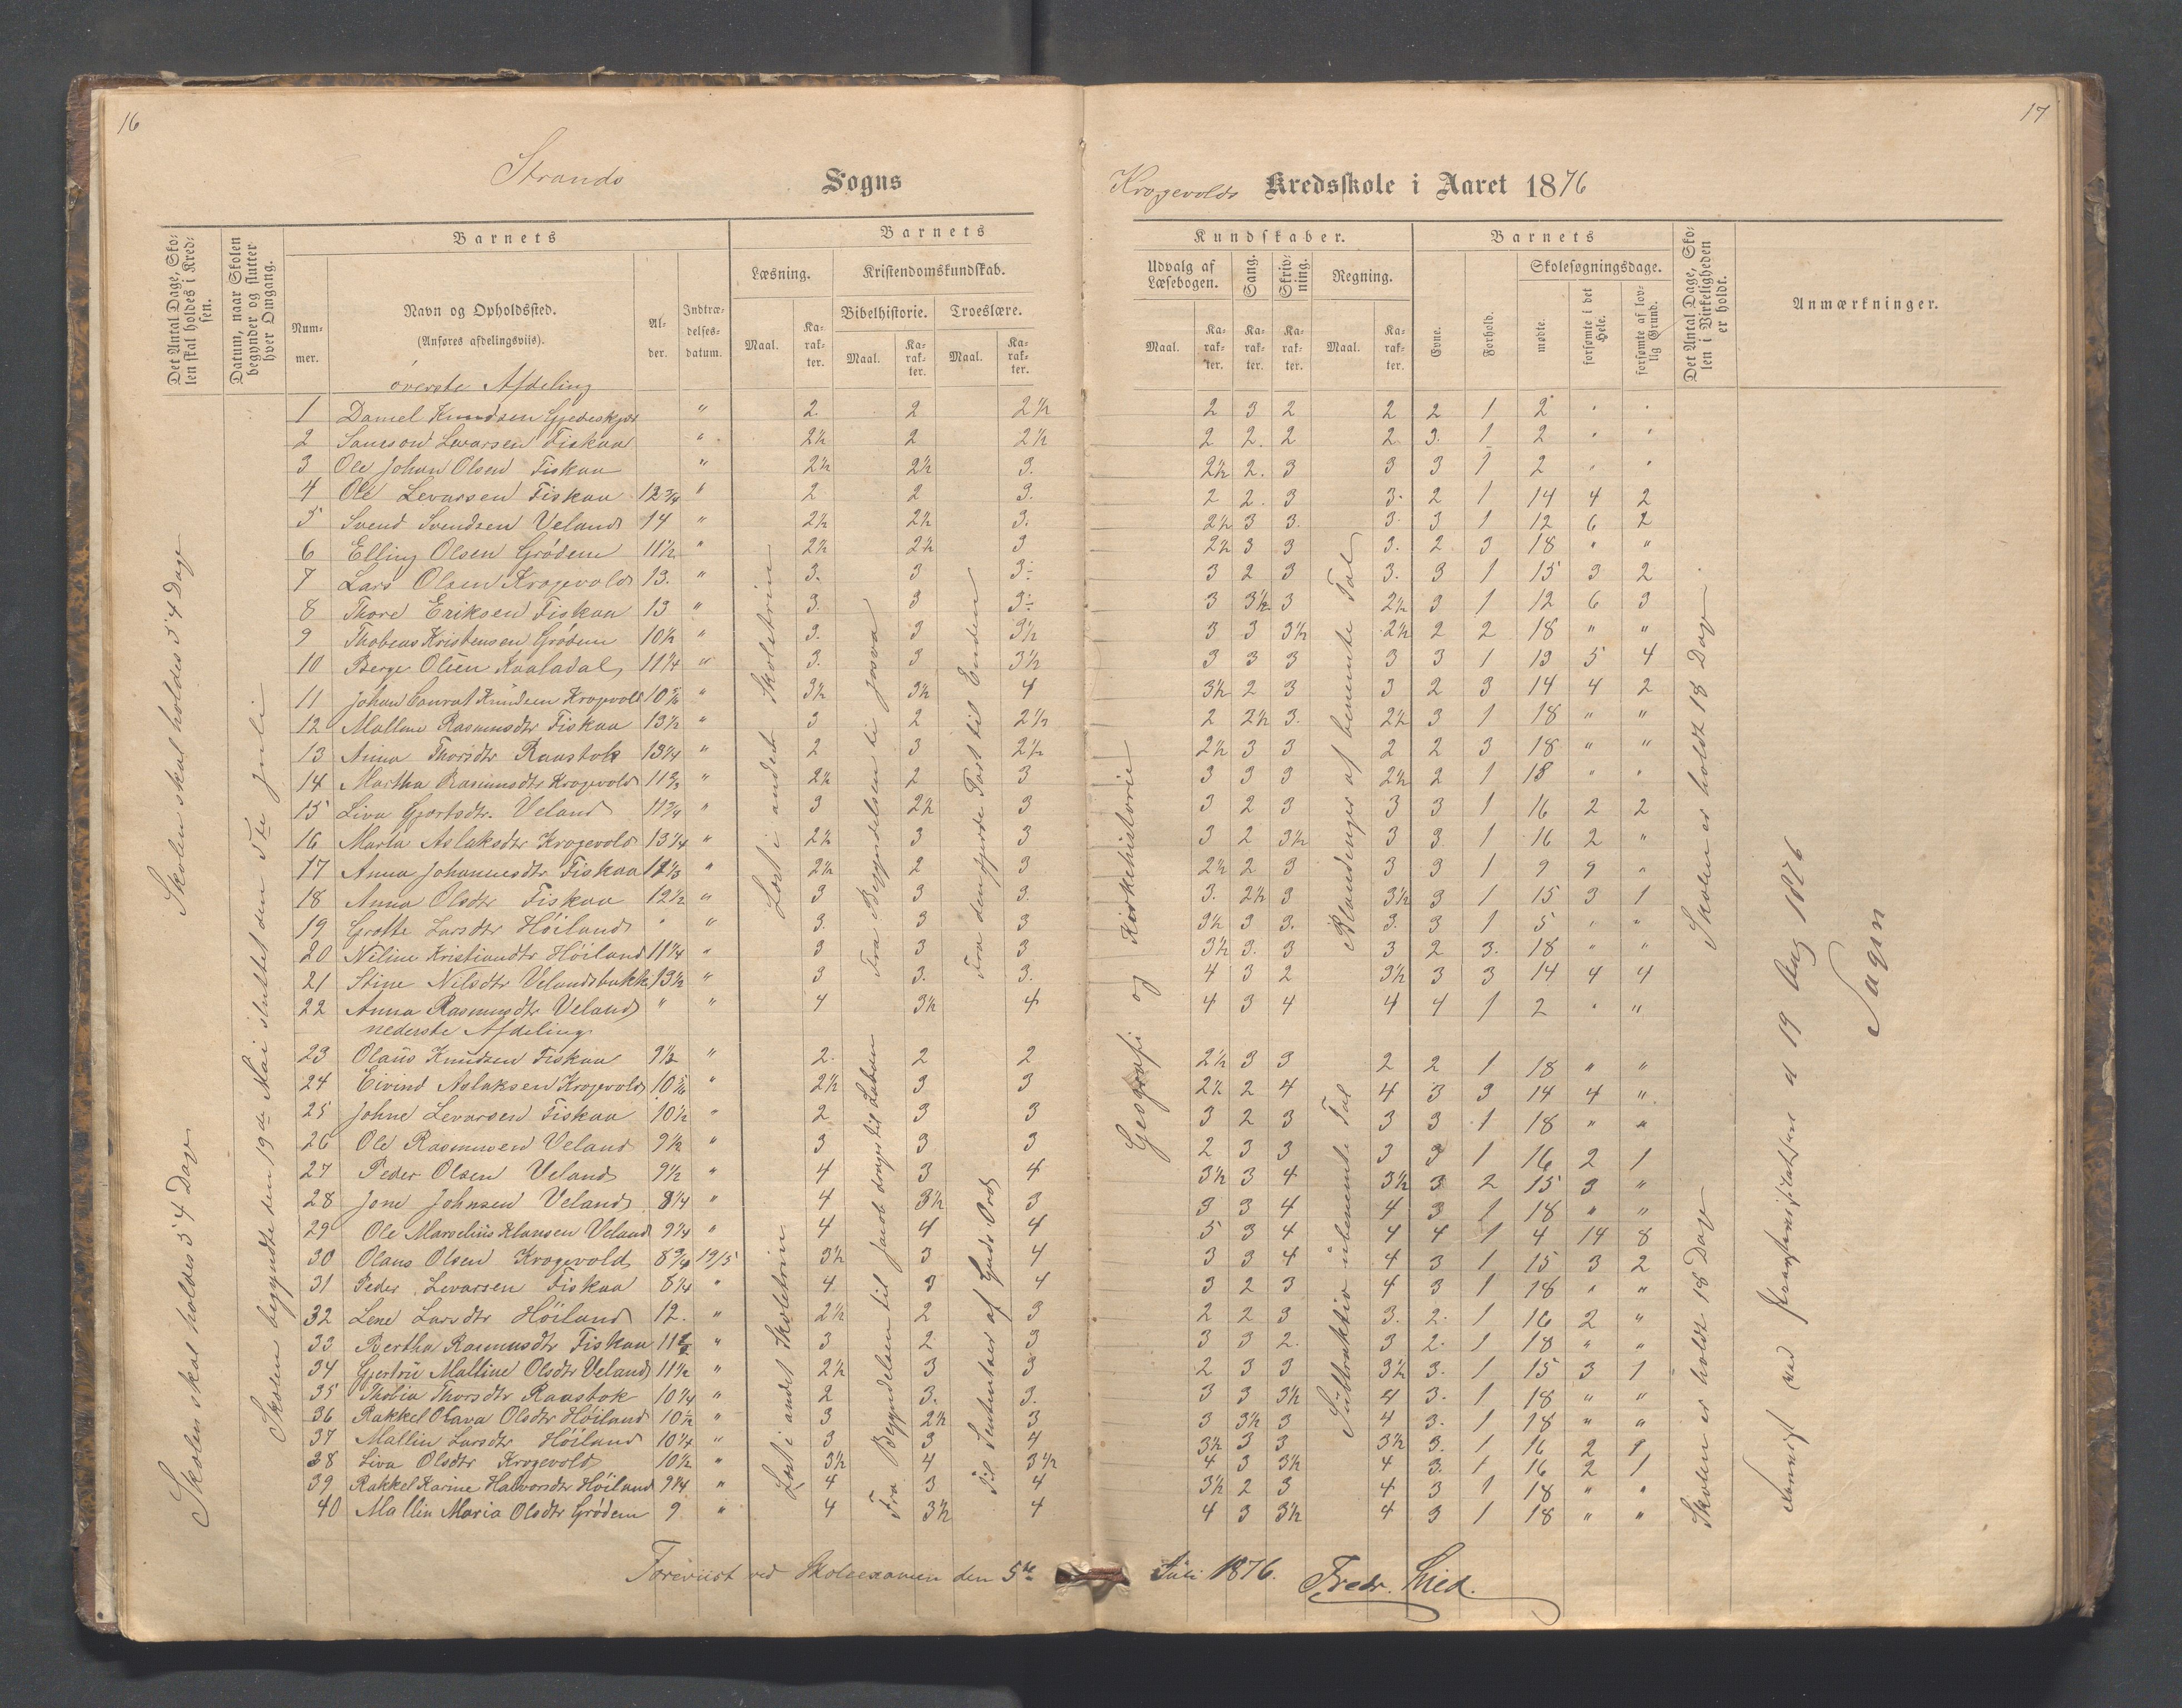 16
17
Strands Sogns
Krogevolds Kredsskole i Aaret 1876
Det Antal Dage, Skolen skal holdes i Kredsen.
Datum, naar Skolen begynder og slutter hver Omgang.
Barnets
Nummer.
Navn og Opholdssted. (Anføres afdelingsviis).
Alder.
Indtrædelsesdatum.
Barnets
Læsning.
Kristendomskundskab.
Bibelhistorie. Troeslære.
Maal. Karakter. Maal. Karakter. Maal. Karakter.
Kundskaber.
Udvalg af Læsebogen. Sang. Skrivning. Regning.
Maal. Karakter. Karakter. Karakter. Maal. Karakter.
Barnets
Evne. Forhold.
Skolesøgningsdage.
mødte. forsømte i det Hele. forsømte af lovlig Grund.
Det Antal Dage, Skolen i Virkeligheden er holdt.
Anmærkninger.
øverste Afdeling
1 Daniel Knudsen Gjedeskjær " 2. 2 2½ 2 3 2 2 2 1 2 " "
2 Samson Levarsen Fiskaa " 2½ 2 2½ 2 2. 2 2 3. 1 2 " "
3 Ole Johan Olsen Fiskaa " 2½ 2½ 3. 2½ 2. 3 3 3 1 2 " "
4 Ole Levarsen Fiskaa 12¾ " 2 2 3. 2 2. 3 3. 2 1 14 4 2
5 Svend Svendsen Veland 14 " 2½ 2½ 3. 2½ 3 3. 3. 3 1 12 6 2
6 Elling Olsen Grødem 11½ " 2½ 2½ 3 2½ 3 3 3. 2 3 18 " "
7 Lars Olsen Krogevold 13. " 3. 3 3÷ 3 2 3 3. 3 1 15 3 2
8 Thore Eriksen Fiskaa 13 " 3. 3 3÷ 3 3½ 3 2½ 3 1 12 6 3
9 Thobeus Kristensen Grødem 10½ " 3. 3 3½ 3 3 3½ 2½ 2 2 18 " "
10 Berge Olsen Kaaladal 11¼ " 3. 3 3½ 3 3 3 3 3 1 13 5 4
11 Johan Conrat Knudsen Krogevold " 3½ 3½ 4 3½ 2 3 3 2 3 14 4 2
12 Malline Rasmusdtr Fiskaa 13½ " 3 2 2½ 2 2½ 3. 2½ 3 1 18 " "
13 Anna Thorsdtr Raastok 13¼ " 2 3 2½ 2½ 3 3 2 2 3 18 " "
14 Martha Rasmusdtr Krogevold " 2½ 2 3 3 3 3 2½ 2 1 18 " "
15 Liva Gjertsdtr. Veland 11¾ " 3 2½ 3 3 2 3 3 3 1 16 2 2
16 Marta Aslaksdtr Krogevold 13¼ " 2½ 3 3 3 2 3½ 3 3. 1 16 2 "
17 Anna Johannesdtr Fiskaa " 2½ 2 3 2½ 2 3 3 3 1 9 9 "
18 Anna Olsdtr Fiskaa 12½ " 3 3 3. 3. 2½ 3 3½ 3 1 15 3 1
19 Grethe Larsdtr Höiland " " 3. 3 3 3½ 3 3. 3. 3 1 5 " "
20 Neline Kristiandtr Höiland 11¼ " 3 3 3 3½ 3. 3 3 2 3. 18 " "
21 Stine Nilsdtr Velandsbakke 13½ " 3 3. 3. 4 3 2 3½ 3 3 14 4 4
22 Anna Rasmusdtr Veland " " 4 3½ 4 4 3 4 4 4 1 2 " "
nederste Afdeling
23 Olaus Knudsen Fiskaa 9½ " 2. 2 2 2½ 3 3 2 2 1 18 " "
24 Eivind Aslaksen Krogevold " 2½ 3 3 2½ 2 4 4 3 3 14 4 "
25 Johne Levarsen Fiskaa 10½ " 2 3 3 3 2 3 3 3 1 18 " "
26 Ole Rasmusen Veland 9½ " 3 3 3 2 3 3 3 3 1 16 2 1
27 Peder Olsen Veland 9½ " 4 3 4 3½ 3 4 3½ 3 2 15 3 "
28 Jone Johnsen Veland 8¼ " 4 3½ 3 3 3 4 4 3 1 18 " "
29 Ole Marselius Klausen Veland 9¼ " 4 4 4 5 3 4 4 4 1 4 14 8
30 Olaus Olsen Krogevold 19/5 3½ 3 4 3 3 4 4 3 1 15 3 2
31 Peder Levarsen Fiskaa 8¼ " 4 3 4 3 2 3 4 3 1 18 " "
32 Lene Larsdtr Höiland 12. " 2½ 2 3 2 2 3 3. 2. 1 16 2 "
33 Bertha Rasmusdtr Fiskaa " 3 2 3 3 3 2. 3 2. 1 18 " "
34 Gjertru Malline Olsdtr Veland 11½ " 2½ 3 3 2 3 3 3½ 3. 1 15 3 1
35 Thobia Thorsdtr Raastok 10¼ " 2 3. 3. 3 3 3½ 4 3. 1 18 " "
36 Rakkel Olava Olsdtr Höiland 10½ " 3 2½ 3 3 3½ 3 4 3. 1 18 " "
37 Mallin Larsdtr Höiland 10¼ " 3 3 4 3½ 3 3 3½ 3. 1 16 2 1
38 Liva Olsdtr Krogevold 10½ " 3½ 4 3½ 4 3 3½ 4 3. 1 16 2 1
39 Rakkel Karine Halvorsdtr Höiland 9¼ " 4 3 4 3½ 2 3 4 3 1 18 " "
40 Mallin Maria Olsdtr Grødem 9 " 4 3½ 4 4 3 3½ 4 3 1 18 " "
Skolen skal holdes 54 Dage
Skolen skal holdes 54 Dage
Skolen begyndte den 19de Mai sluttet den 5te Juli
Læst i andet Skoletrin
Læst i andet Skoletrin
Fra Begyndelsen til Josva
Fra Begyndelsen til Jacob drager til Laban
Fra den fjerde Part til Enden
Til Sententser af Guds Ord
Geografi og Kirkehistorie
Blandinger af benevnte Tal
Subtraktion i ubenevnte Tal
Skolen er holdt 18 Dage
Skolen er holdt 18 Dage
ved Provstevisitatsen d 19 Aug 1876
Foreviist ved Skoleexamen den 5te Juli 1876. Fredr.